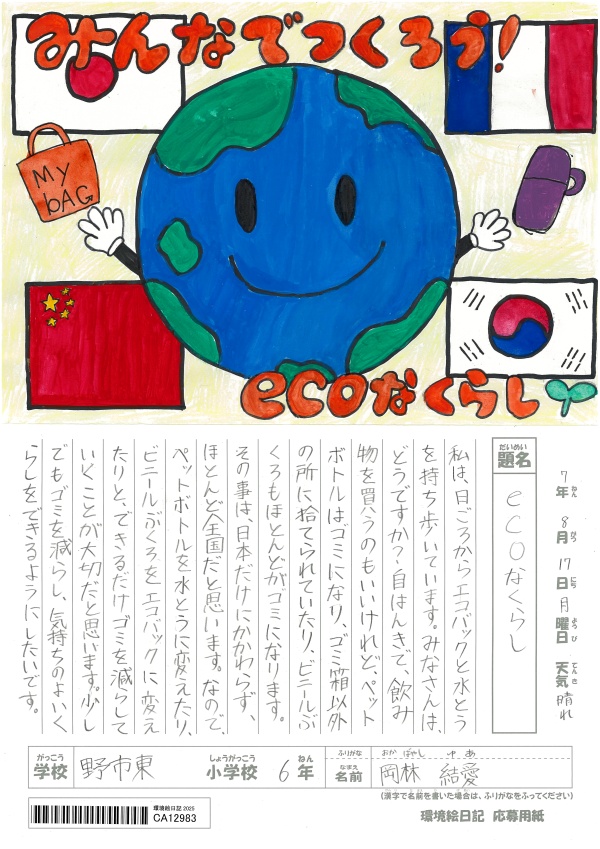 みんなでつくろう!
MY
bAG
ecoなくらし
7年 8月 17日 月曜日 天気 晴れ
ねん がつ にち ようび てんき
だいめい
題名
ecoなくらし
私は、日ごろからエコバックと水とう
を持ち歩いています。みなさんは、
どうですか?自はんきで、飲み
物を買うのもいいけれど、ペット
ボトルはゴミになり、ゴミ箱以外
の所に捨てられていたり、ビニールぶ
くろもほとんどがゴミになります。
その事は、日本だけにかかわらず、
ほとんど全国だと思います。なので、
ペットボトルを水とうに変えたり、
ビニールぶくろをエコバックに変え
たりと、できるだけゴミを減らして
いくことが大切だと思います。少し
でもゴミを減らし、気持ちのよいく
らしをできるようにしたいです。
がっこう しょうがっこう ねん ふりがな おかばやし ゆあ
学校 野市東 小学校 6年 なまえ 名前 岡林 結愛
(漢字で名前を書いた場合は、ふりがなをふってください)
環境絵日記 2025
CA12983
環境絵日記 応募用紙